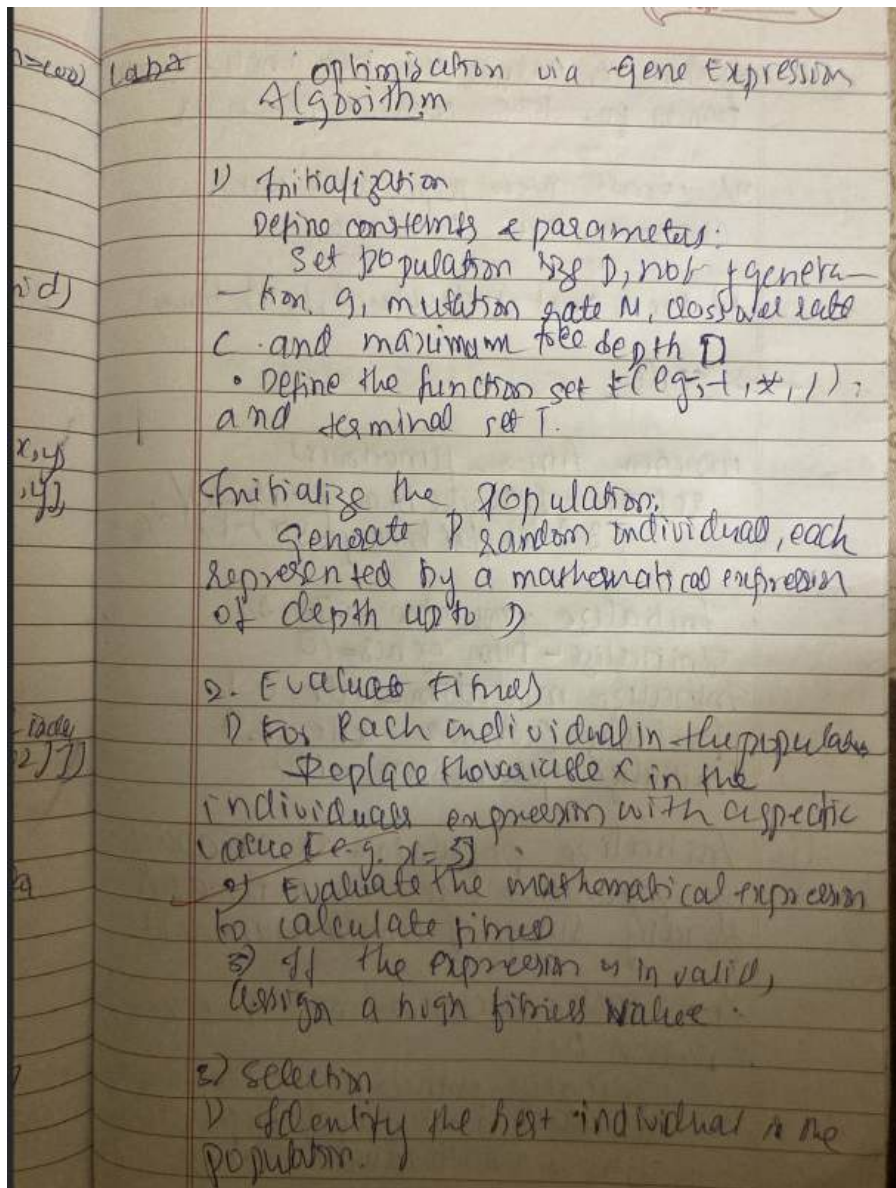 n=100)
Lab 7
Optimization via Gene Expression
Algorithm
1) Initialization
Define constants & parameters:
Set population size P, no of genera-
-tion. G, mutation rate M, crossover rate
C. and maximum tree depth D
• Define the function set F(eg,+, *, /):
and terminal set T.
id)
x,y
,y],
Initialize the population:
Generate P random individual, each
represented by a mathematical expression
of depth upto D
2. Evaluate Fitness
1) For Each individual in the population
Replace the variable x in the
individuals expression with a specific
value [e.g. x=5]
2]])
2) Evaluate the mathematical expression
to calculate fitness
3) If the expression is invalid,
assign a high fitness value.
3) Selection
1) Identify the best individual in the
population.